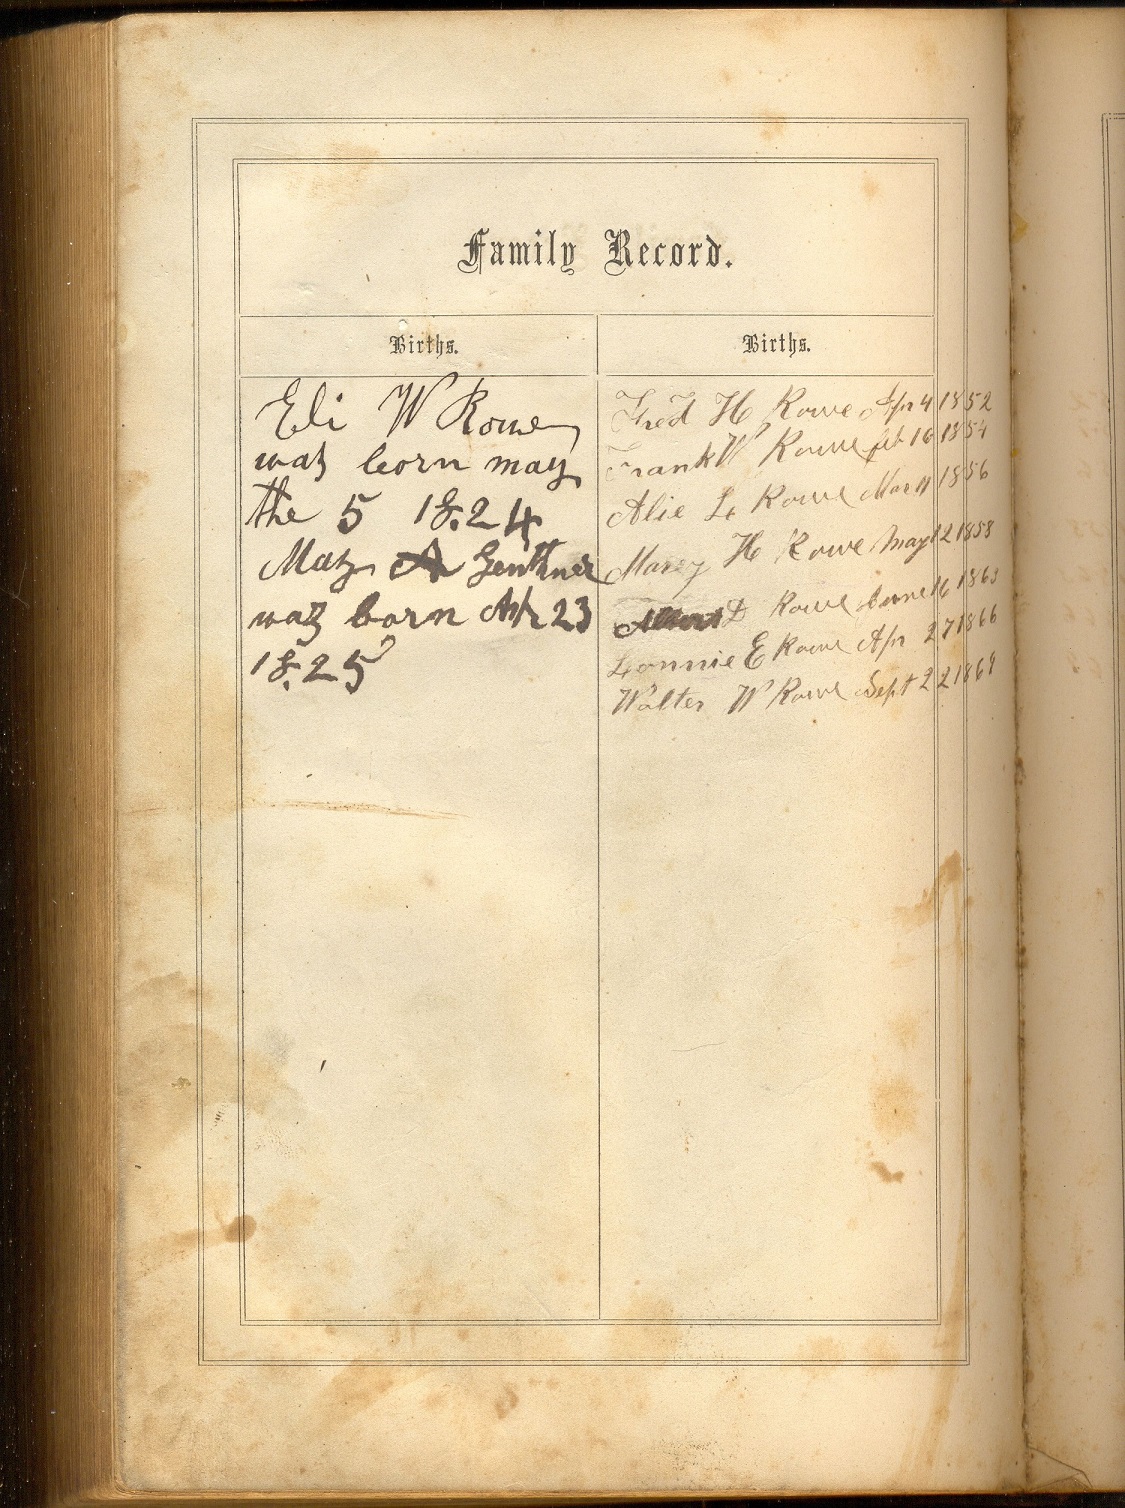 Family Record.
Births.
Eli W Rowe
was born may
the 5 18.24
Mary A Genthner
was born Apr 23
18.25
Births.
Fred H Rowe Apr 4 1852
Frank W Rowe feb 16 1854
Alie L Rowe Mar 11 1856
Marey H Rowe may 12 1858
Albert D Rowe June 16 1863
Lonnie E Rowe Apr 27 1866
Walter W Rowe Sept 22 1869